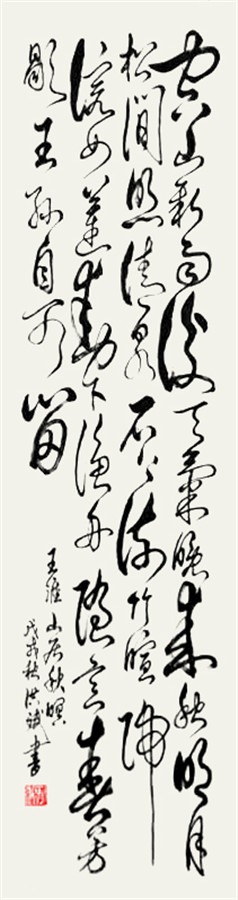 空山新雨後天氣晚來秋明月
松間照清泉石上流竹喧歸
浣女蓮動下漁舟隨意春芳
歇王孫自可留
王維山居秋暝
戊戌秋洪書